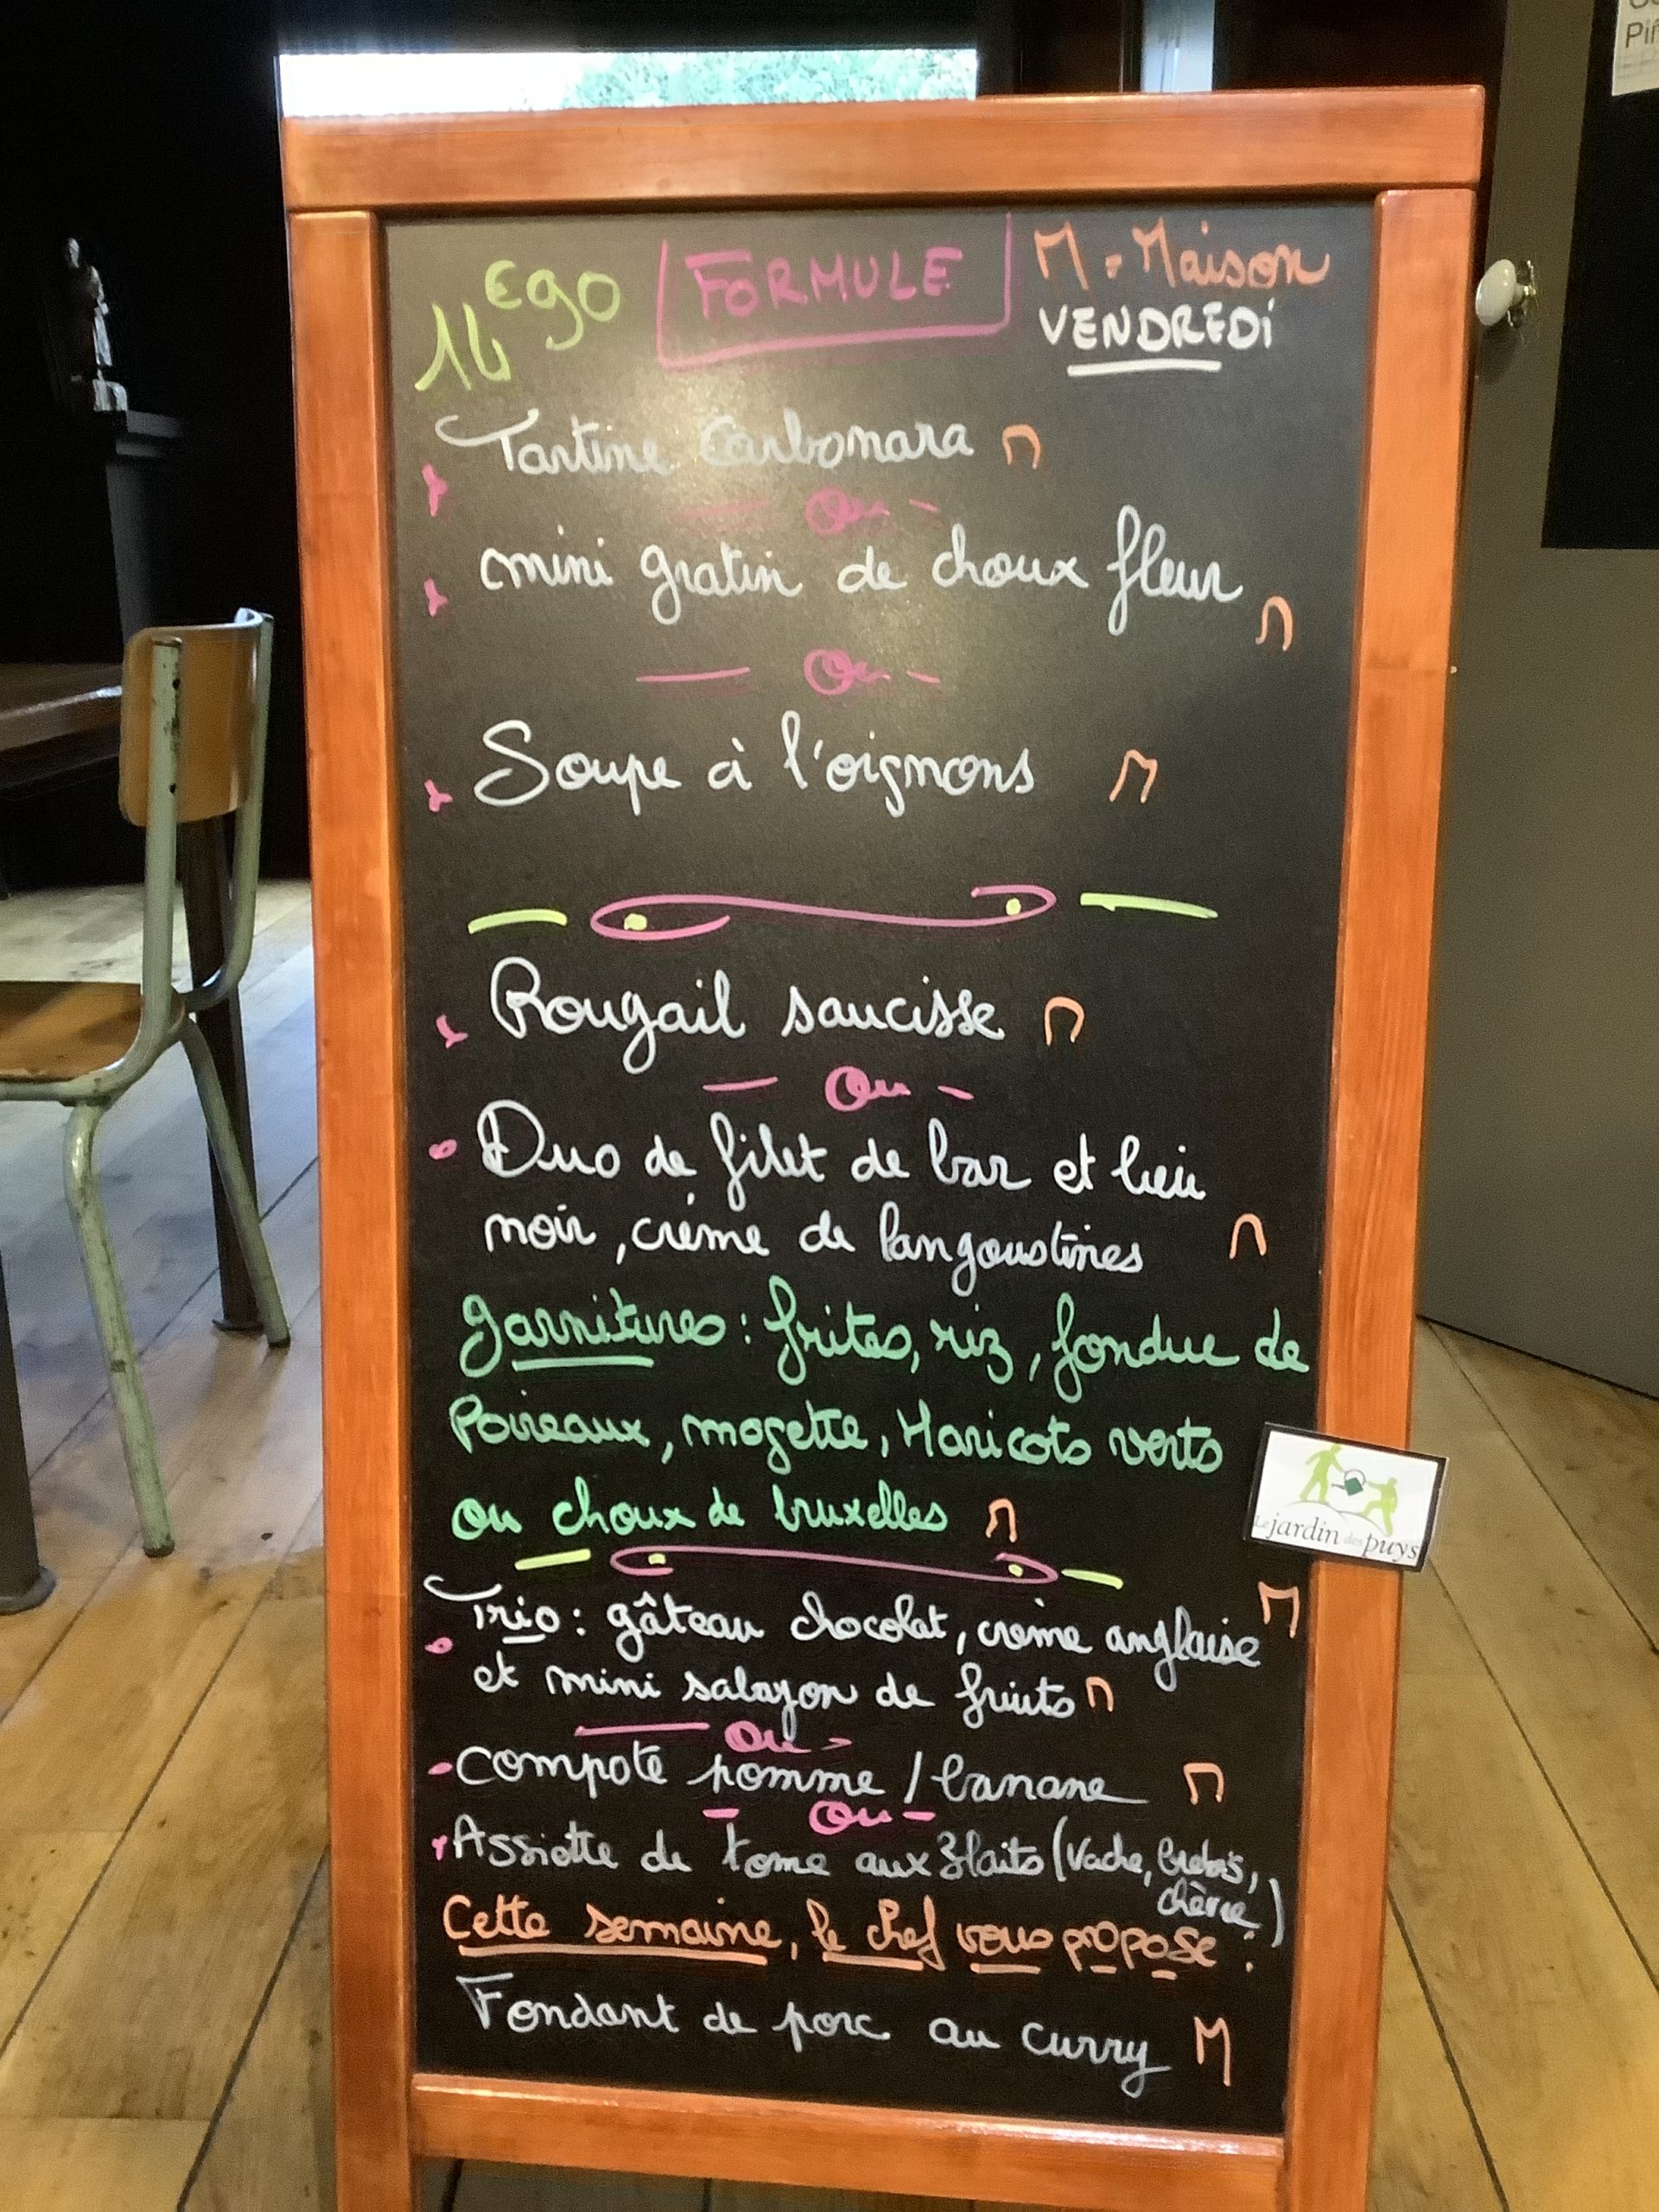 14€90 FORMULE M = Maison
VENDREDi
Tartine Carbonara M
Ou
mini gratin de choux fleur M
Ou
Soupe à l'oignons M
Rougail saucisse M
Ou
Duo de filet de bar et lieu
noir, crème de langoustines M
garnitures : frites, riz, fondue de
Poireaux, mogette, Haricots verts
ou choux de bruxelles M
Trio : gâteau chocolat, crème anglaise M
et mini salayon de fruits M
Ou
Compote pomme / banane M
Ou
Assiette de tome aux 3 laits (Vache, brebis,
chèvre)
Cette semaine, le chef vous propose :
Fondant de porc au curry M
Le jardin des puys